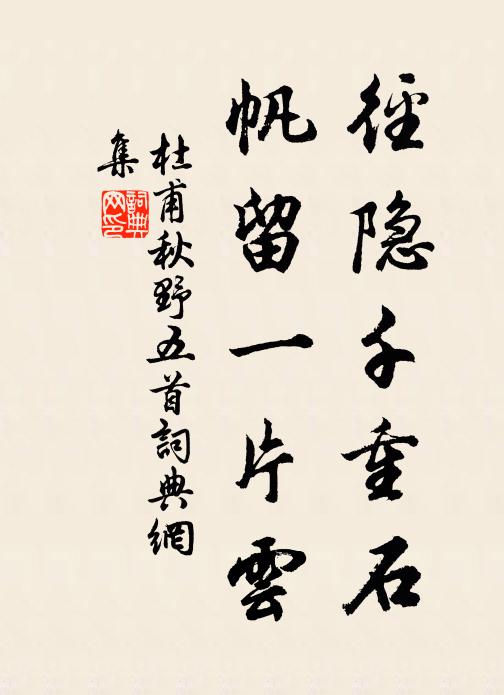 徑隐千重石
帆留一片雲
杜甫秋野五首詞典網
集
詞典
网印